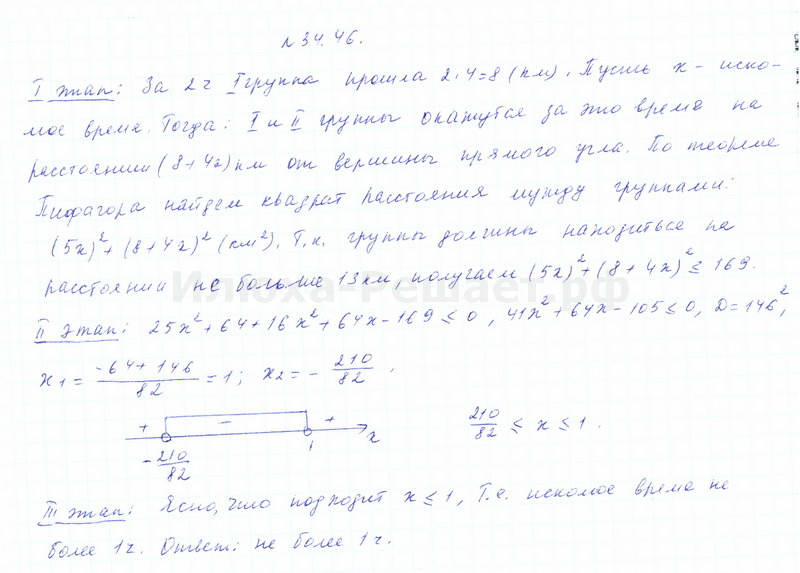 №34.46.
I этап: За 2ч I группа прошла 2·4=8 (км). Пусть x - иско-
мое время. Тогда: I и II группы окажутся за это время на
расстоянии (8+4x) км от вершины прямого угла. По теореме
Пифагора найдем квадрат расстояния между группами:
(5x)²+(8+4x)² (км²). Т.к. группы должны находиться на
расстоянии не больше 13км, получаем (5x)²+(8+4x)² ≤ 169.
Илюха-Решает.рф
II этап: 25x²+64+16x²+64x-169 ≤ 0, 41x²+64x-105 ≤ 0, D=146²,
x₁ = (-64+146)/82 = 1; x₂ = - 210/82,
+ - + x
-210/82 1
210/82 ≤ x ≤ 1.
III этап: Ясно, что подходит x ≤ 1, т.е. искомое время не
более 1ч. Ответ: не более 1ч.